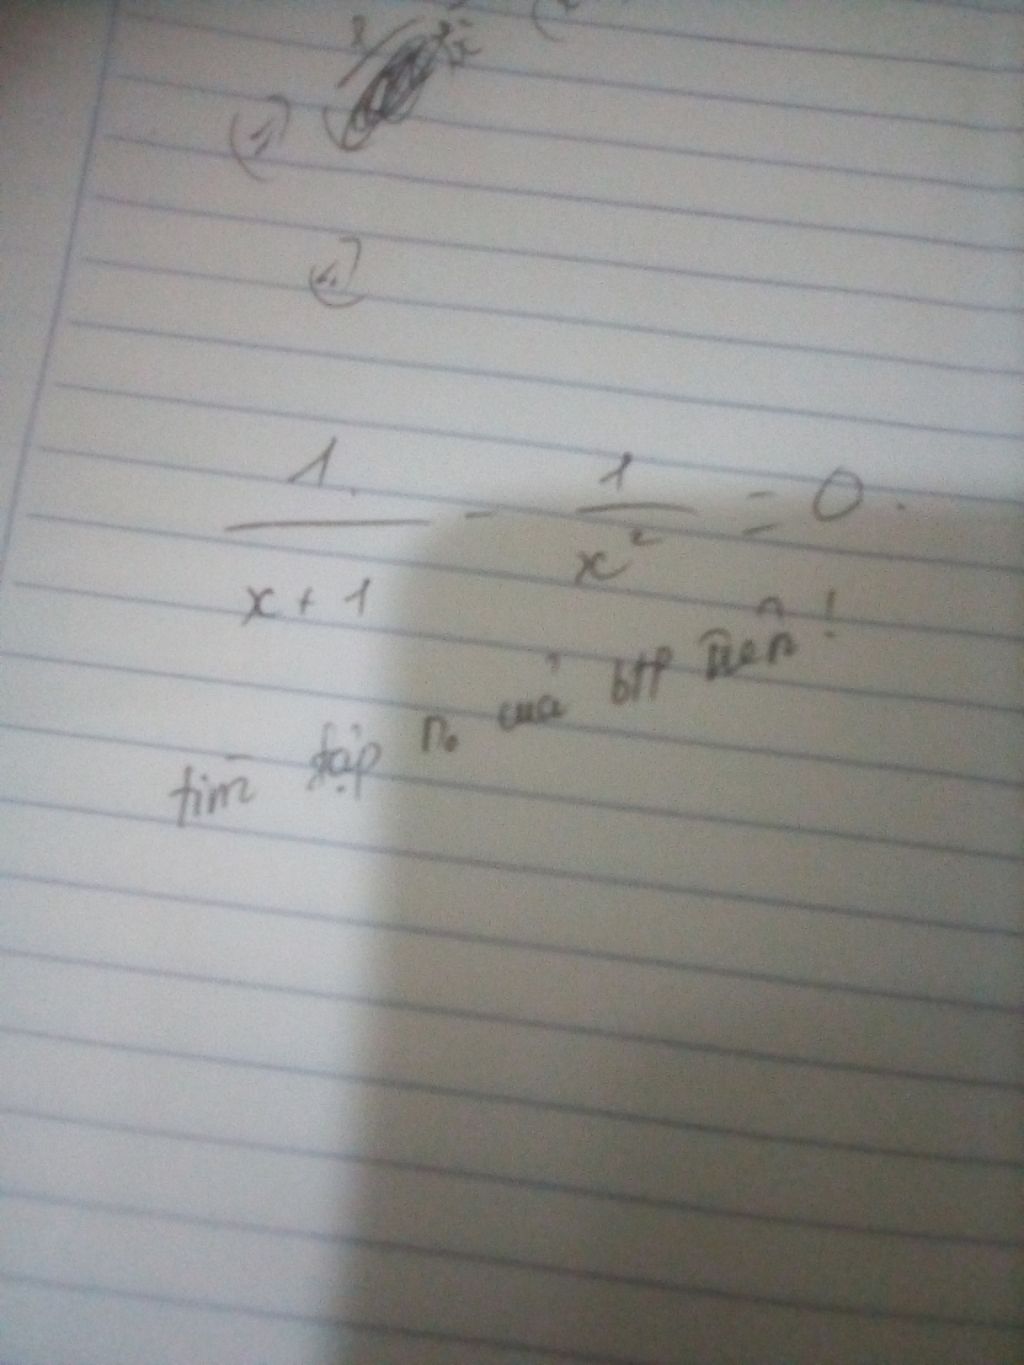 (=)
1/(x + 1) - 1/x² = 0.
tìm tập n₀ của btp trên!